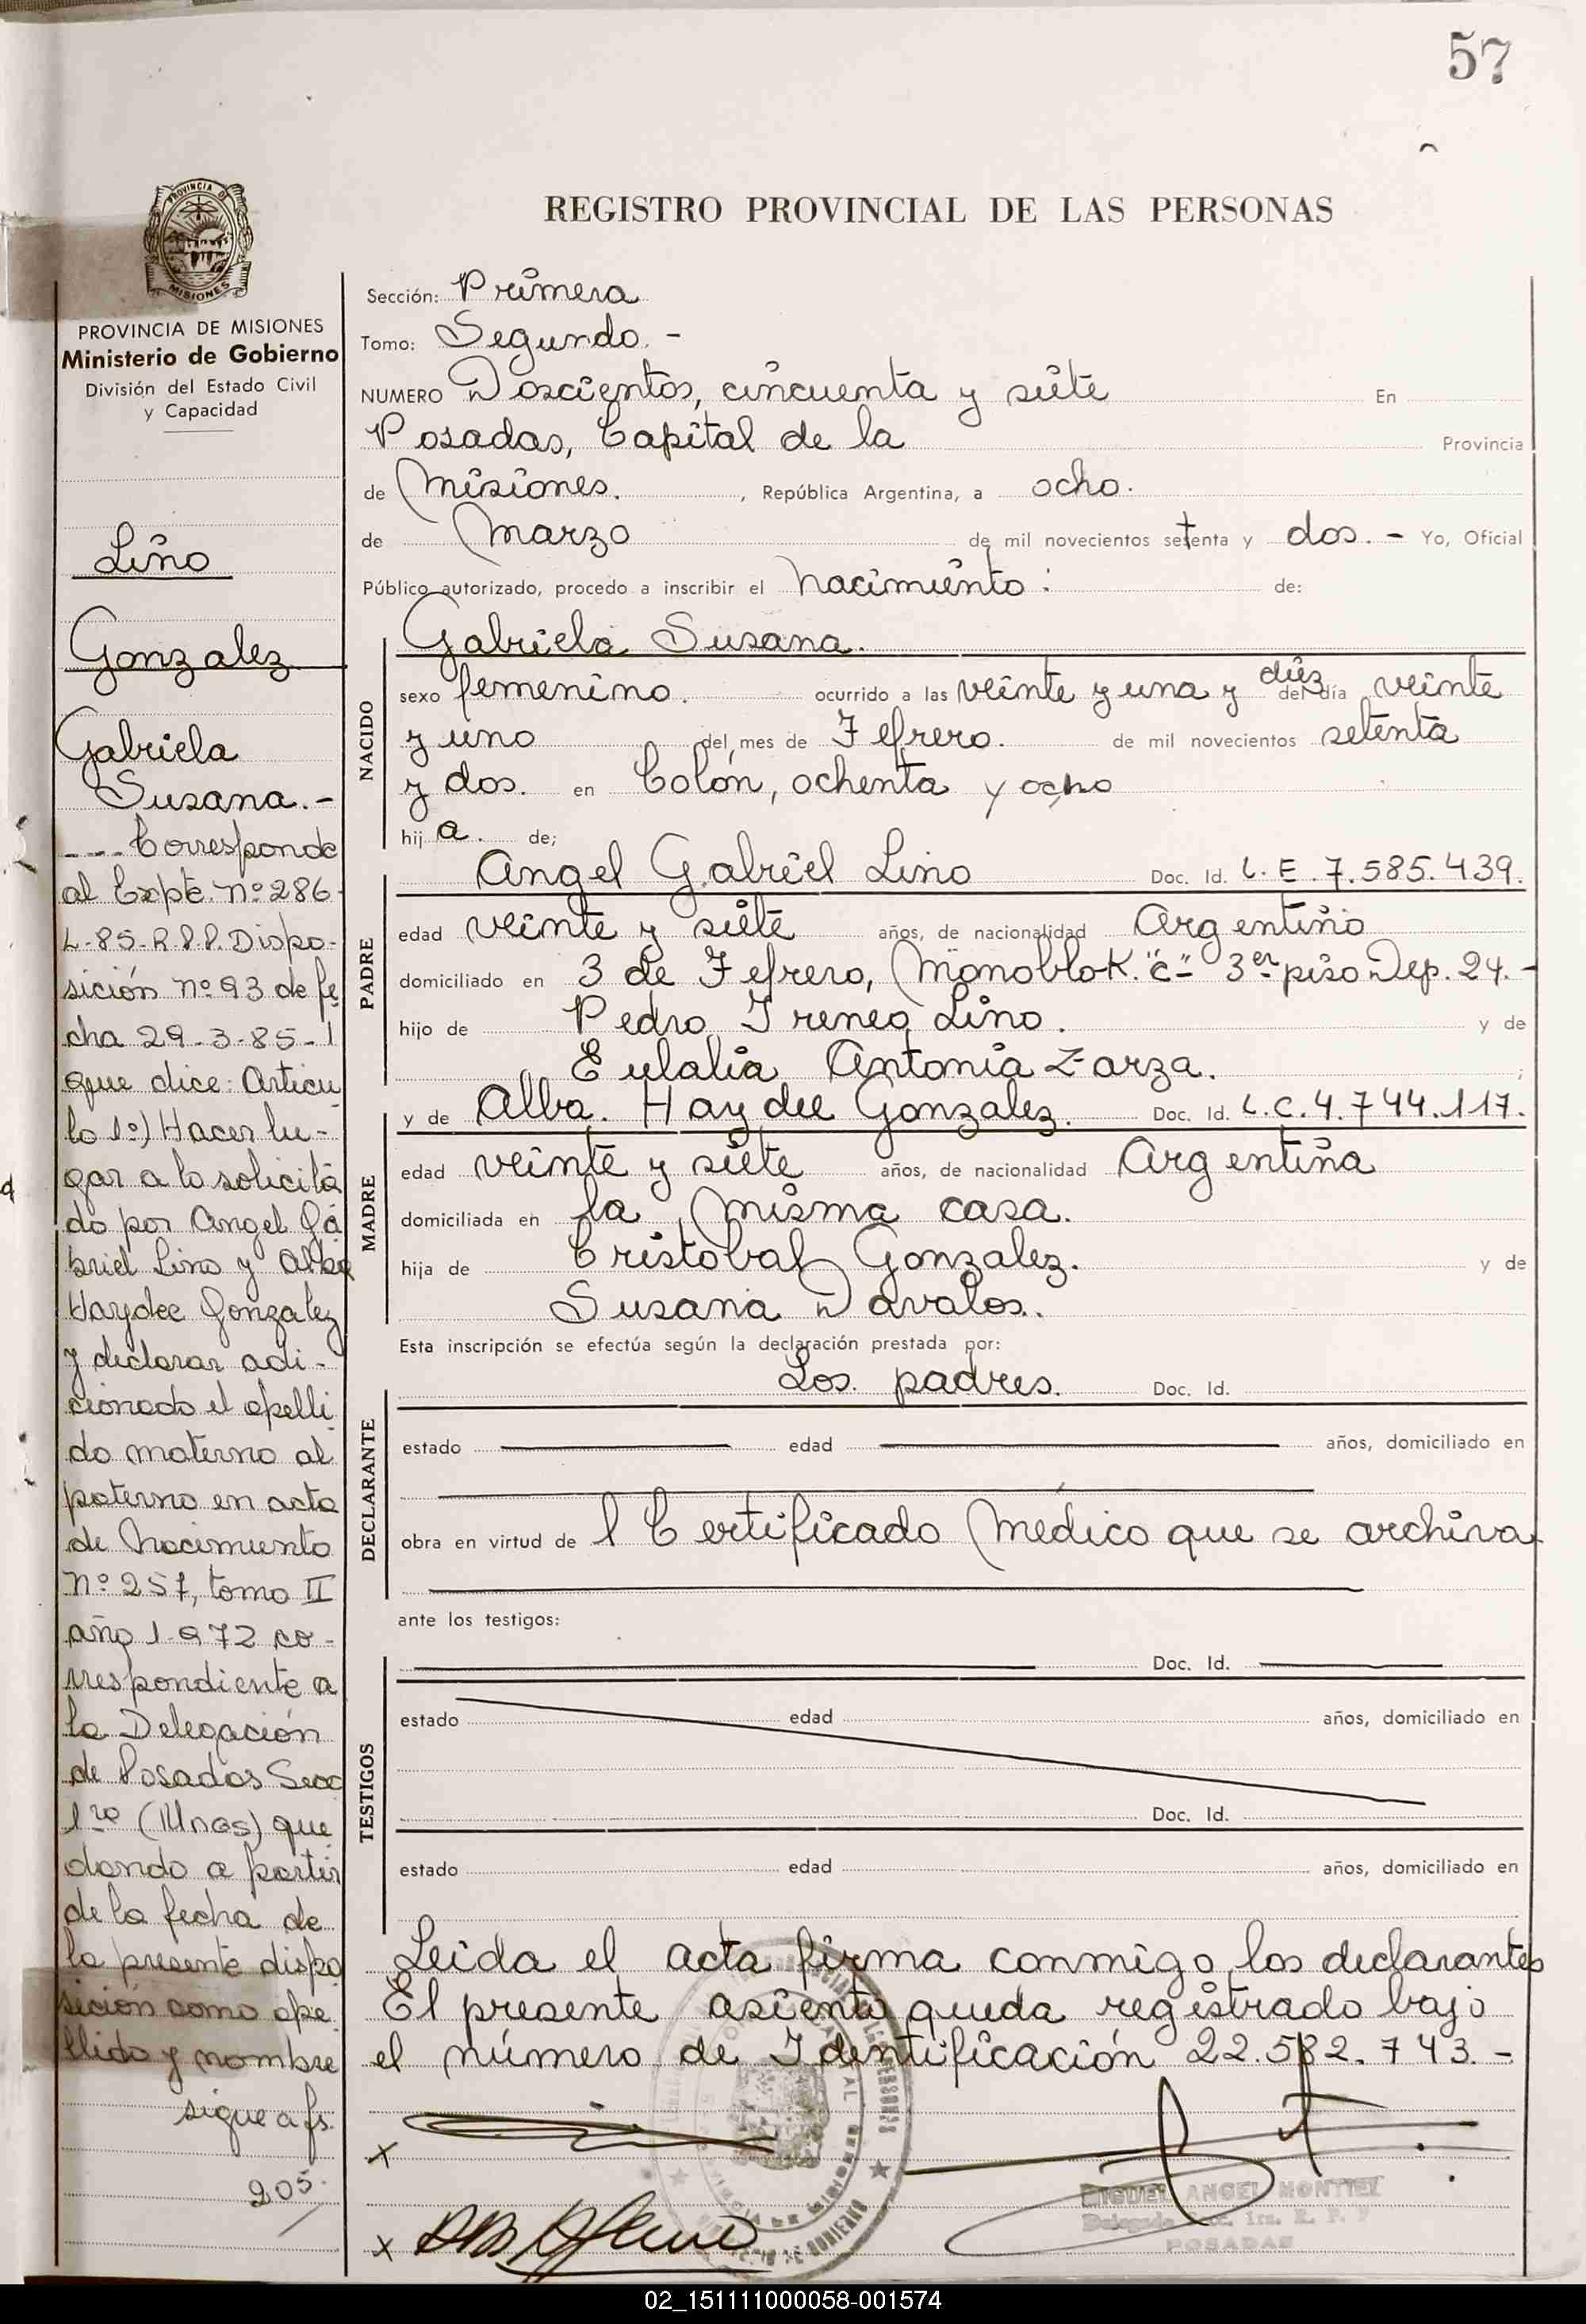 57
PROVINCIA DE
MISIONES
PROVINCIA DE MISIONES
Ministerio de Gobierno
División del Estado Civil
y Capacidad
Lino
Gonzalez
Gabriela
Susana.-
--- Corresponde
al Expte. Nº 286-
L-85-R.P.P. Dispo-
sición nº 93 de fe
cha 29-3-85-1
que dice: Articu
lo 1º) Hacer lu-
gar a lo solicita
do por Angel Ga
briel Lino y Alba
Haydee Gonzalez
y declarar adi-
cionado el apelli
do materno al
paterno en acta
de Nacimiento
Nº 257, tomo II
año 1.972 co-
rrespondiente a
la Delegación
de Posadas Secc
1ra (Mnes) que
dando a partir
de la fecha de
la presente dispo
sición como ape
llido y nombre
sigue a fs.
205.
REGISTRO PROVINCIAL DE LAS PERSONAS
Sección: Primera
Tomo: Segundo.-
NUMERO Doscientos, cincuenta y siete En
Posadas, Capital de la Provincia
de Misiones. , República Argentina, a ocho.
de Marzo de mil novecientos setenta y dos.- Yo, Oficial
Público autorizado, procedo a inscribir el Nacimiento: de:
NACIDO
Gabriela Susana.
sexo femenino. ocurrido a las veinte y una y diez del día veinte
y uno del mes de Febrero. de mil novecientos setenta
y dos. en Colón, ochenta y ocho
hij a. de;
PADRE
Angel Gabriel Lino Doc. Id. L.E. 7.585.439.
edad veinte y siete años, de nacionalidad Argentino
domiciliado en 3 de Febrero, Monoblok. "C"- 3er piso Dep. 24.-
hijo de Pedro Ireneo Lino. y de
Eulalia Antonia Zarza. ;
MADRE
y de Alba. Haydee Gonzalez. Doc. Id. L.C. 4.744.117.
edad veinte y siete años, de nacionalidad Argentina
domiciliada en la misma casa.
hija de Cristobal Gonzalez. y de
Susana Davalos.
Esta inscripción se efectúa según la declaración prestada por:
DECLARANTE
Los padres. Doc. Id.
estado edad años, domiciliado en
obra en virtud de l Certificado Médico que se archiva
ante los testigos:
TESTIGOS
Doc. Id.
estado edad años, domiciliado en
Doc. Id.
estado edad años, domiciliado en
Leida el acta firma conmigo los declarantes
El presente asiento queda registrado bajo
el número de Identificación 22.582.743.-
MIGUEL ANGEL MONTIEL
POSADAS
02_151111000058-001574